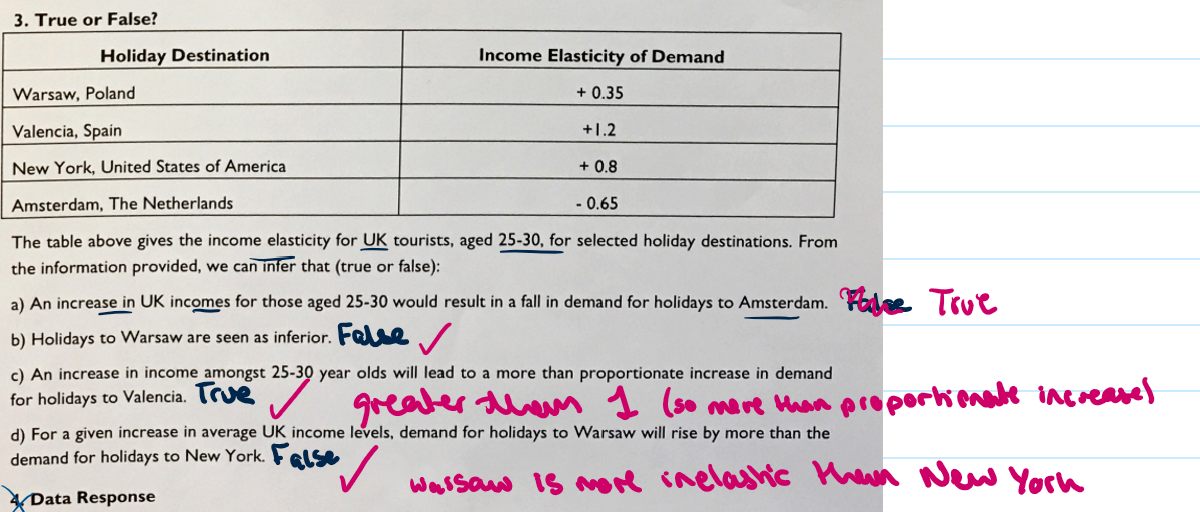 3. True or False?
Holiday Destination Income Elasticity of Demand
Warsaw, Poland + 0.35
Valencia, Spain +1.2
New York, United States of America + 0.8
Amsterdam, The Netherlands - 0.65
The table above gives the income elasticity for UK tourists, aged 25-30, for selected holiday destinations. From
the information provided, we can infer that (true or false):
a) An increase in UK incomes for those aged 25-30 would result in a fall in demand for holidays to Amsterdam. False True
b) Holidays to Warsaw are seen as inferior. False ✓
c) An increase in income amongst 25-30 year olds will lead to a more than proportionate increase in demand
for holidays to Valencia. True ✓ greater than 1 (so more than proportionate increase)
d) For a given increase in average UK income levels, demand for holidays to Warsaw will rise by more than the
demand for holidays to New York. False ✓
warsaw is more inelastic than New York
4. Data Response